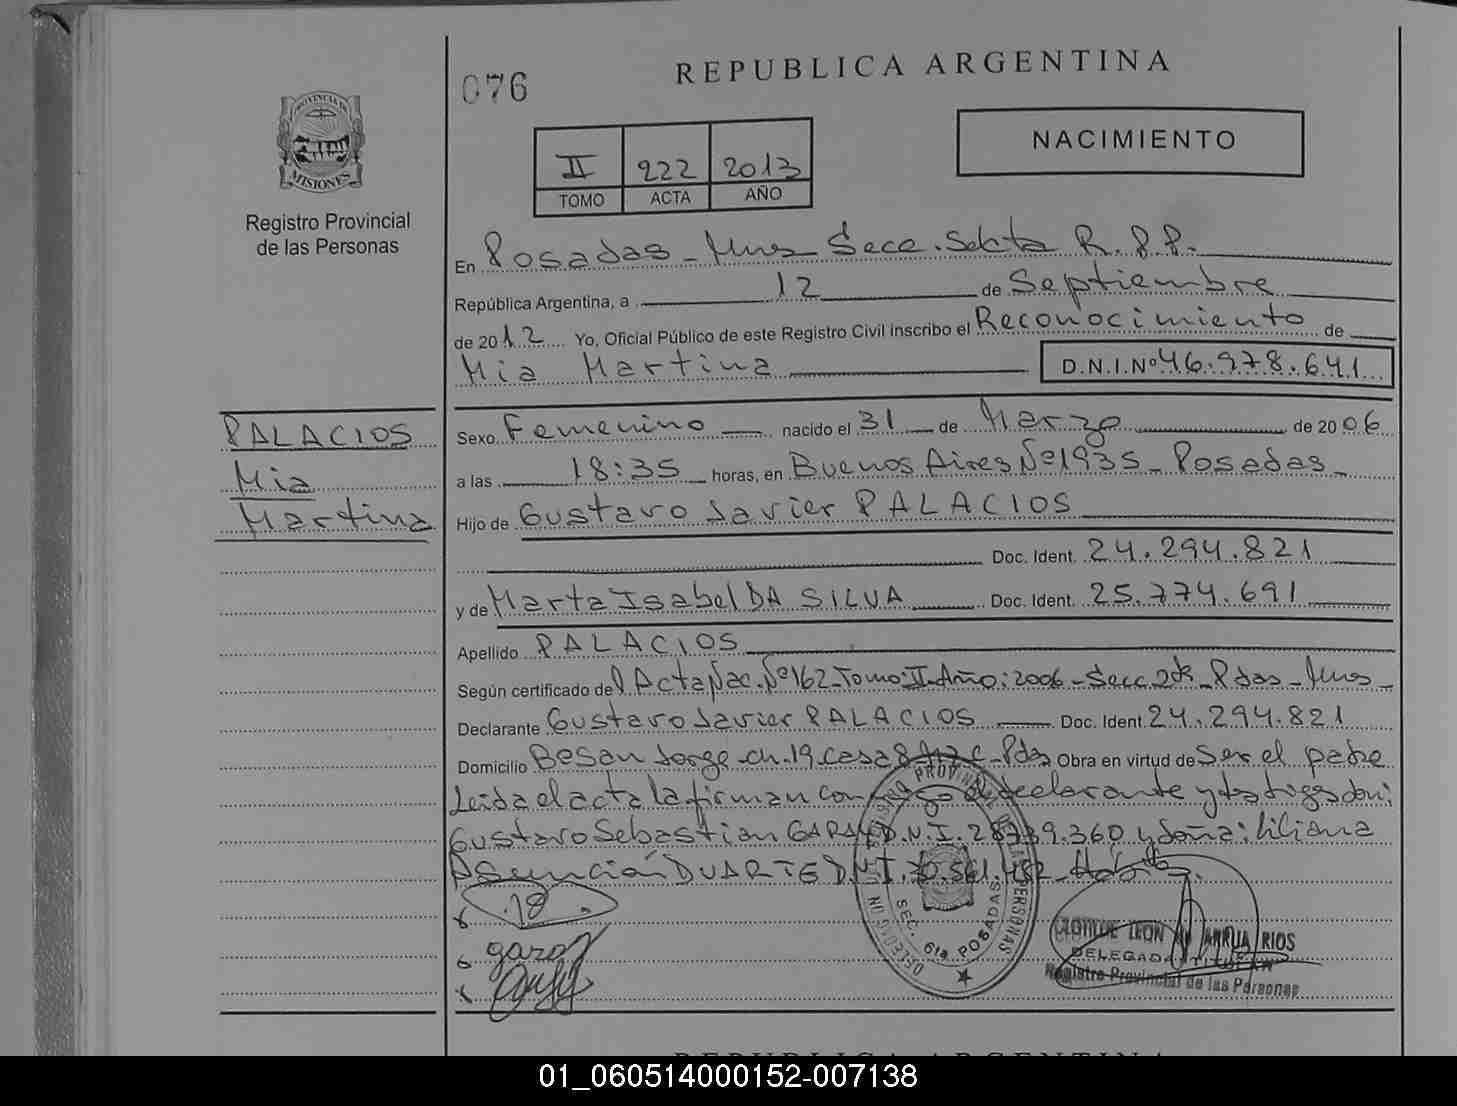 076
REPUBLICA ARGENTINA
NACIMIENTO
PROVINCIA DE
MISIONES
Registro Provincial
de las Personas
II 222 2013
TOMO ACTA AÑO
En Posadas - Mnes Secc. Sexta R.P.P.
República Argentina, a 12 de Septiembre
de 2012 Yo, Oficial Público de este Registro Civil inscribo el Reconocimiento de
Mia Martina D.N.I.Nº 46.978.641
PALACIOS
Mia
Martina
Sexo Femenino nacido el 31 de Marzo de 2006
a las 18:35 horas, en Buenos Aires Nº1935 - Posadas -
Hijo de Gustavo Javier PALACIOS
Doc. Ident. 24.294.821
y de Marta Isabel DA SILVA Doc. Ident. 25.774.691
Apellido PALACIOS
Según certificado del Acta Nac. Nº162 - Tomo: II - Año: 2006 - Secc. 2da - Pdas - Mnes -
Declarante Gustavo Javier PALACIOS Doc. Ident. 24.294.821
Domicilio Bº San Jorge - ch. 19 casa 8 - Pdas Obra en virtud de Ser el padre
Leida el acta la firman conmigo el declarante y testigos don:
Gustavo Sebastian GARAY D.N.I. 28.739.360 y doña: Liliana
Asunción DUARTE D.N.I. 561.452 -
REGISTRO PROVINCIAL DE LAS PERSONAS
SEC. 6ta POSADAS
CLOTILDE LEON RIOS
DELEGADA TITULAR
Registro Provincial de las Personas
REPUBLICA ARGENTINA
01_060514000152-007138